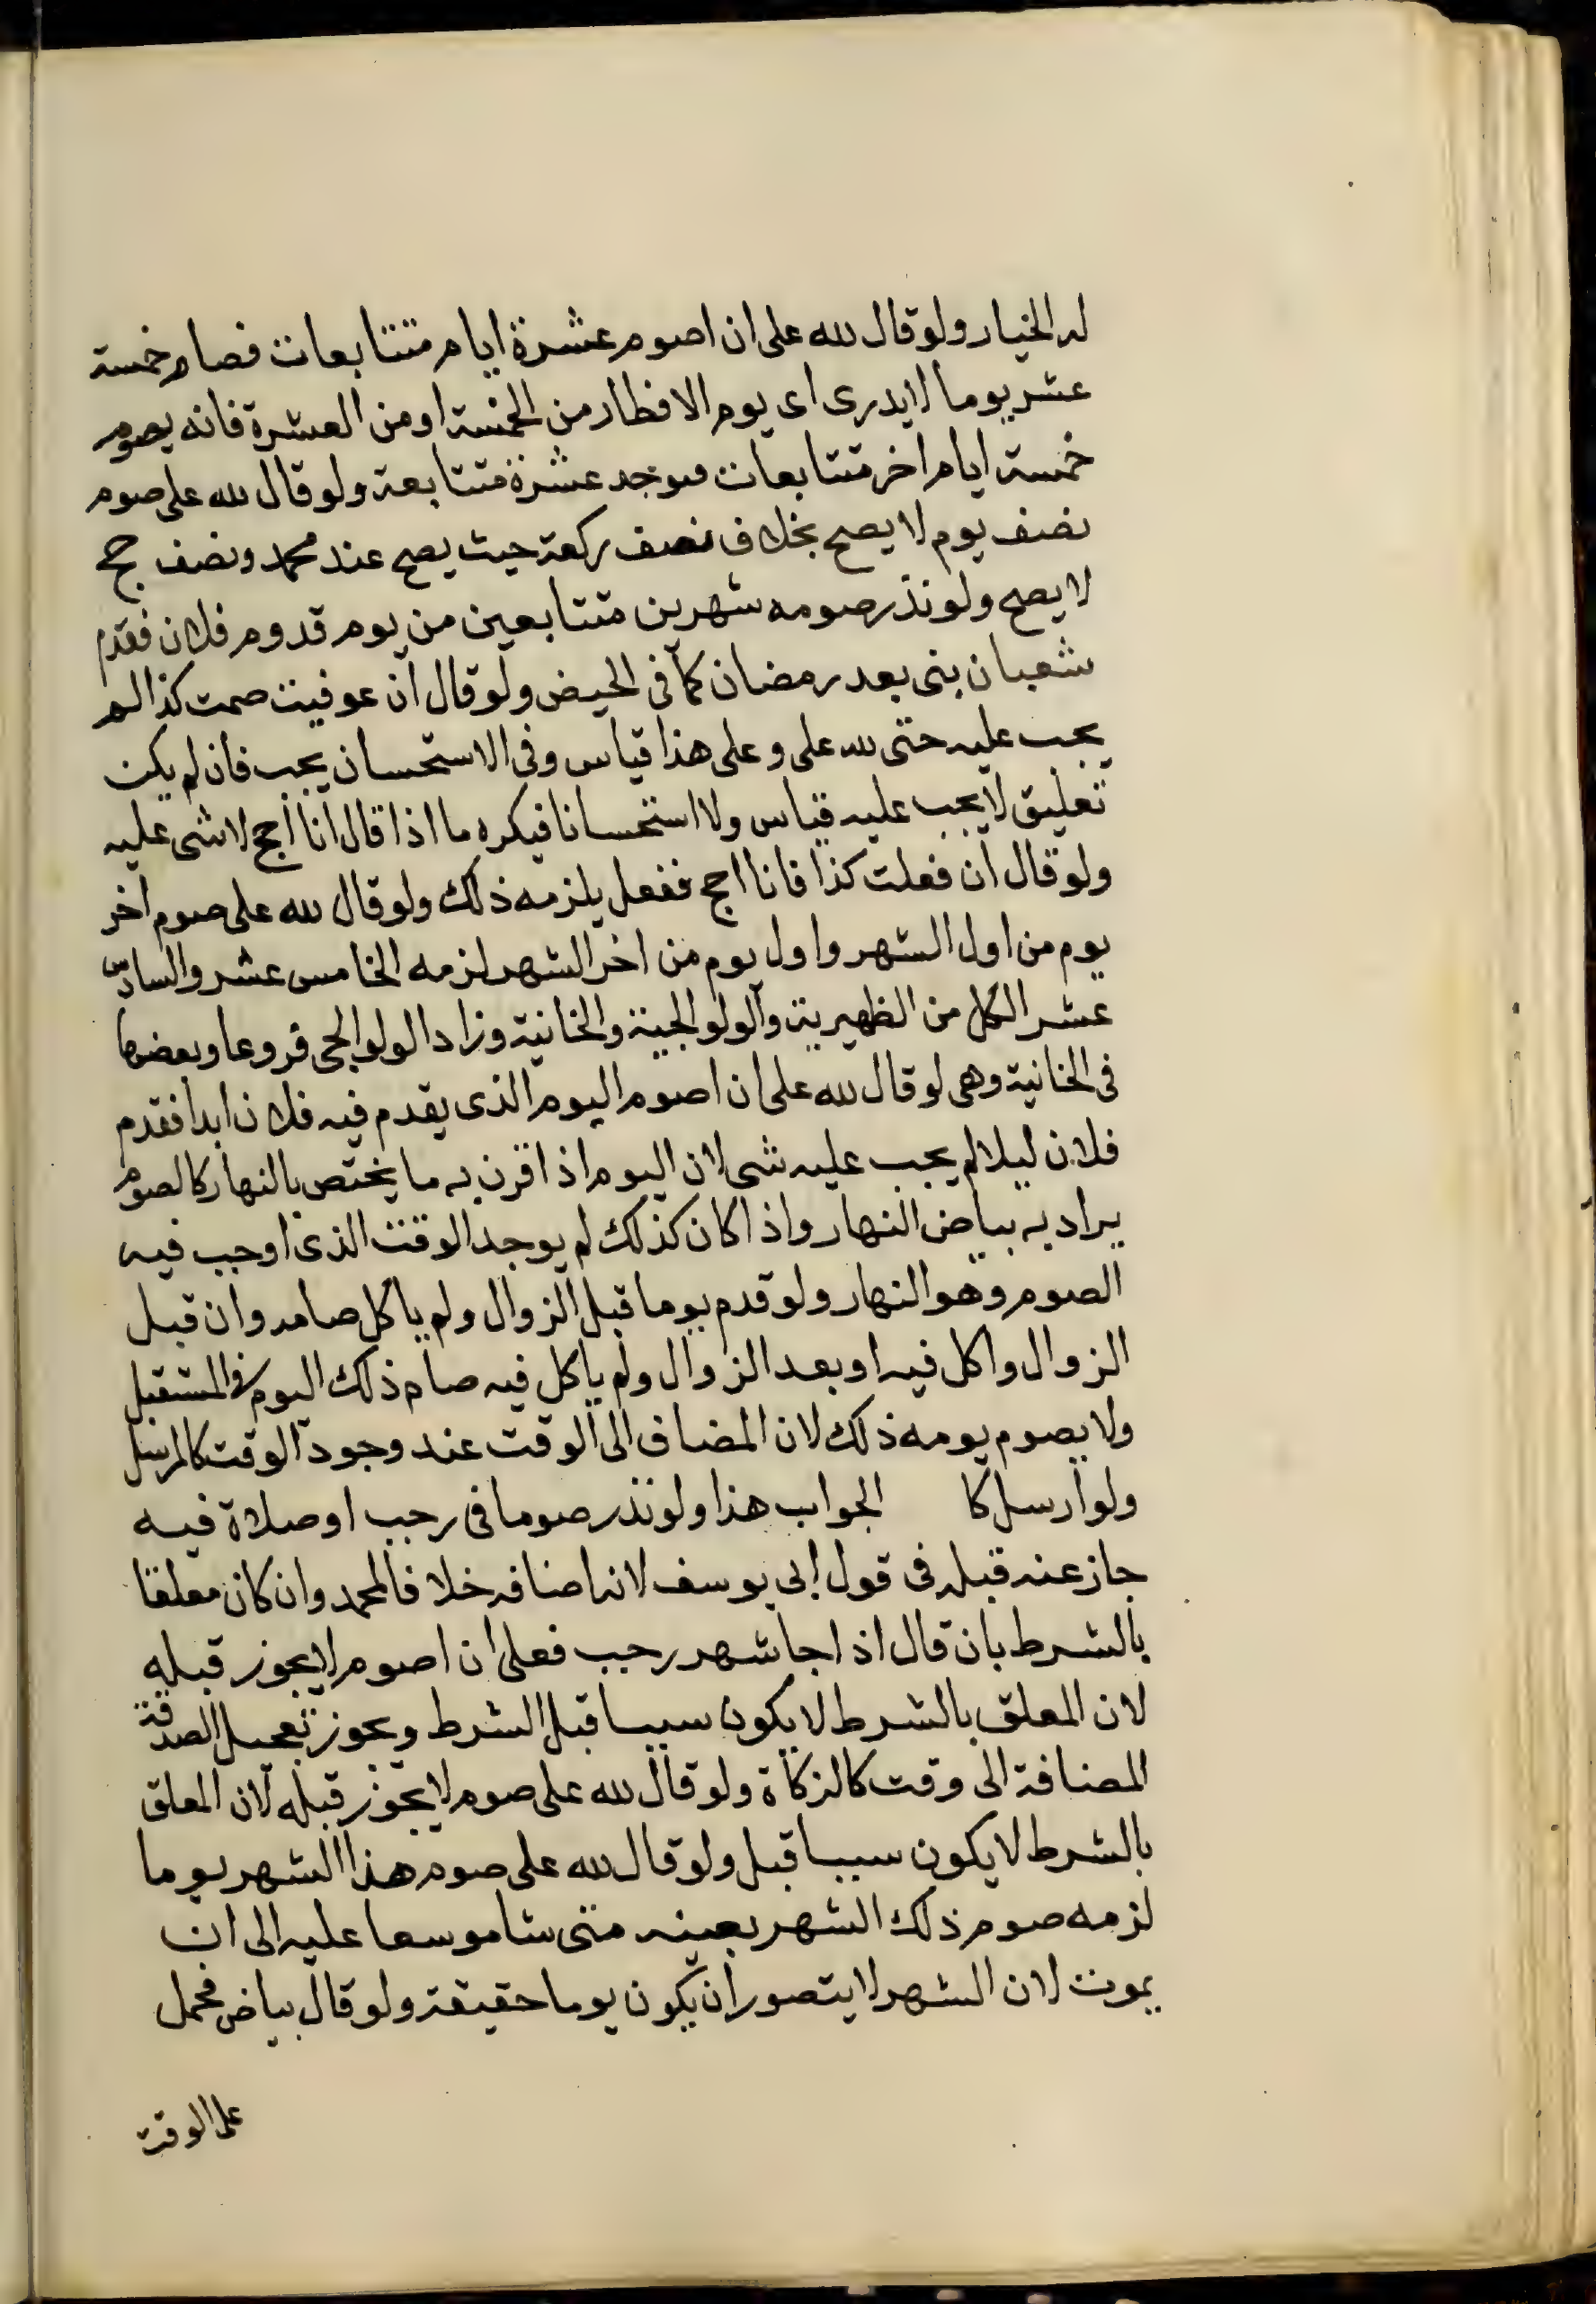 له الخيار ولو قال لله على ان اصوم عشرة ايام متتابعات فصام خمسة
عشر يوما لا يدرى اى يوم الافطار من الخمسة او من العشرة فانه يصوم
خمسة ايام اخر متتابعات فيوجد عشرة متتابعة ولو قال لله على صوم
نصف يوم لا يصح بخلاف نصف ركعة حيث يصح عند محمد ونصف حج
لا يصح ولو نذر صومه شهرين متتابعين من يوم قدوم فلان فقدم
شعبان بنى بعد رمضان كما فى الحيض ولو قال ان عوفيت صمت كذا لم
يجب عليه حتى لله على وعلى هذا قياس وفى الاستحسان يجب فان لم يكن
تعليق لا يجب عليه قياس ولا استحسانا فيكره ما اذا قال انا احج لا شى عليه
ولو قال ان فعلت كذا فانا احج ففعل يلزمه ذلك ولو قال لله على صوم اخر
يوم من اول الشهر واول يوم من اخر الشهر لزمه الخامس عشر والسادس
عشر الكل من الظهيرية والولوالجية والخانية وزاد الولوالجى فروعا وبعضها
فى الخانية وهى لو قال لله على ان اصوم اليوم الذى يقدم فيه فلان ابدا فقدم
فلان ليلا لم يجب عليه شى لان اليوم اذا قرن به ما يختص بالنهار كالصوم
يراد به بياض النهار واذا كان كذلك لم يوجد الوقت الذى اوجب فيه
الصوم وهو النهار ولو قدم يوما قبل الزوال ولم ياكل صامه وان قبل
الزوال واكل فيه او بعد الزوال ولم ياكل فيه صام ذلك اليوم فى المستقبل
ولا يصوم يومه ذلك لان المضاف الى الوقت عند وجود الوقت كالمرسل
ولو ارسل كا الجواب هذا ولو نذر صوما فى رجب او صلاة فيه
جاز عنه قبله فى قول ابى يوسف لانه اضافه خلافا لمحمد وان كان معلقا
بالشرط بان قال اذا جا شهر رجب فعلى ان اصوم لا يجوز قبله
لان المعلق بالشرط لا يكون سببا قبل الشرط ويجوز تعجيل الصدقة
المضافة الى وقت كالزكاة ولو قال لله على صوم لا يجوز قبله لان المعلق
بالشرط لا يكون سببا قبل ولو قال لله على صوم هذا الشهر يوما
لزمه صوم ذلك الشهر بعينه متى شا موسعا عليه الى ان
يموت لان الشهر لا يتصور ان يكون يوما حقيقة ولو قال بياض فحمل
على الوقت